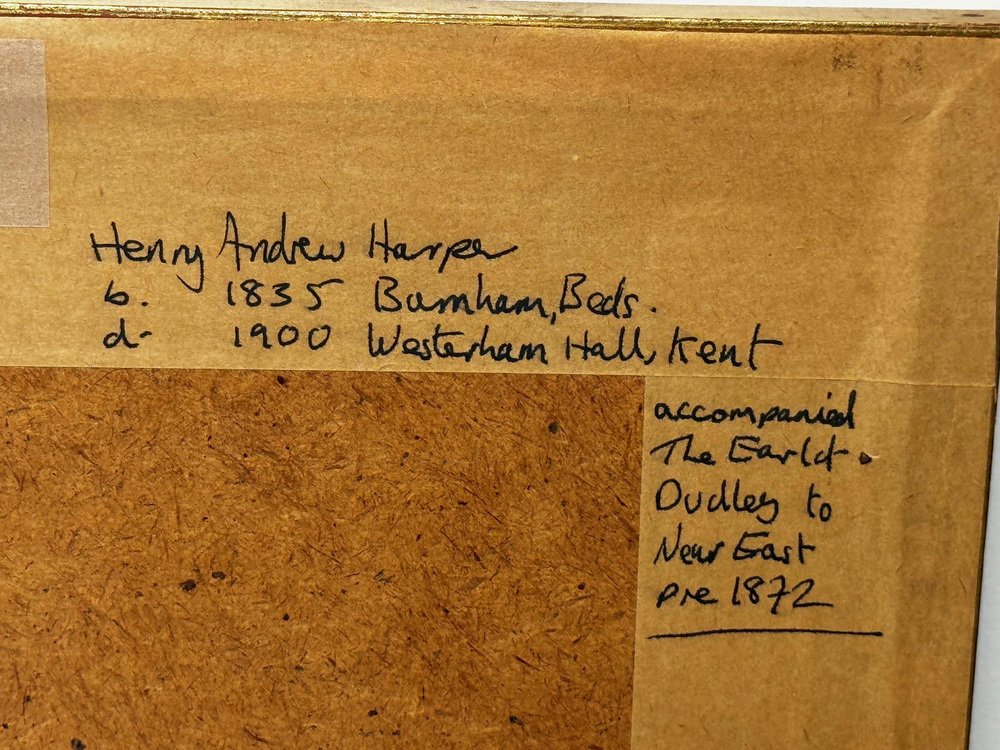 Henry Andrew Harper
b. 1835 Burnham, Beds.
d. 1900 Westerham Hall, Kent
accompanied
The Earl of
Dudley to
Near East
pre 1872